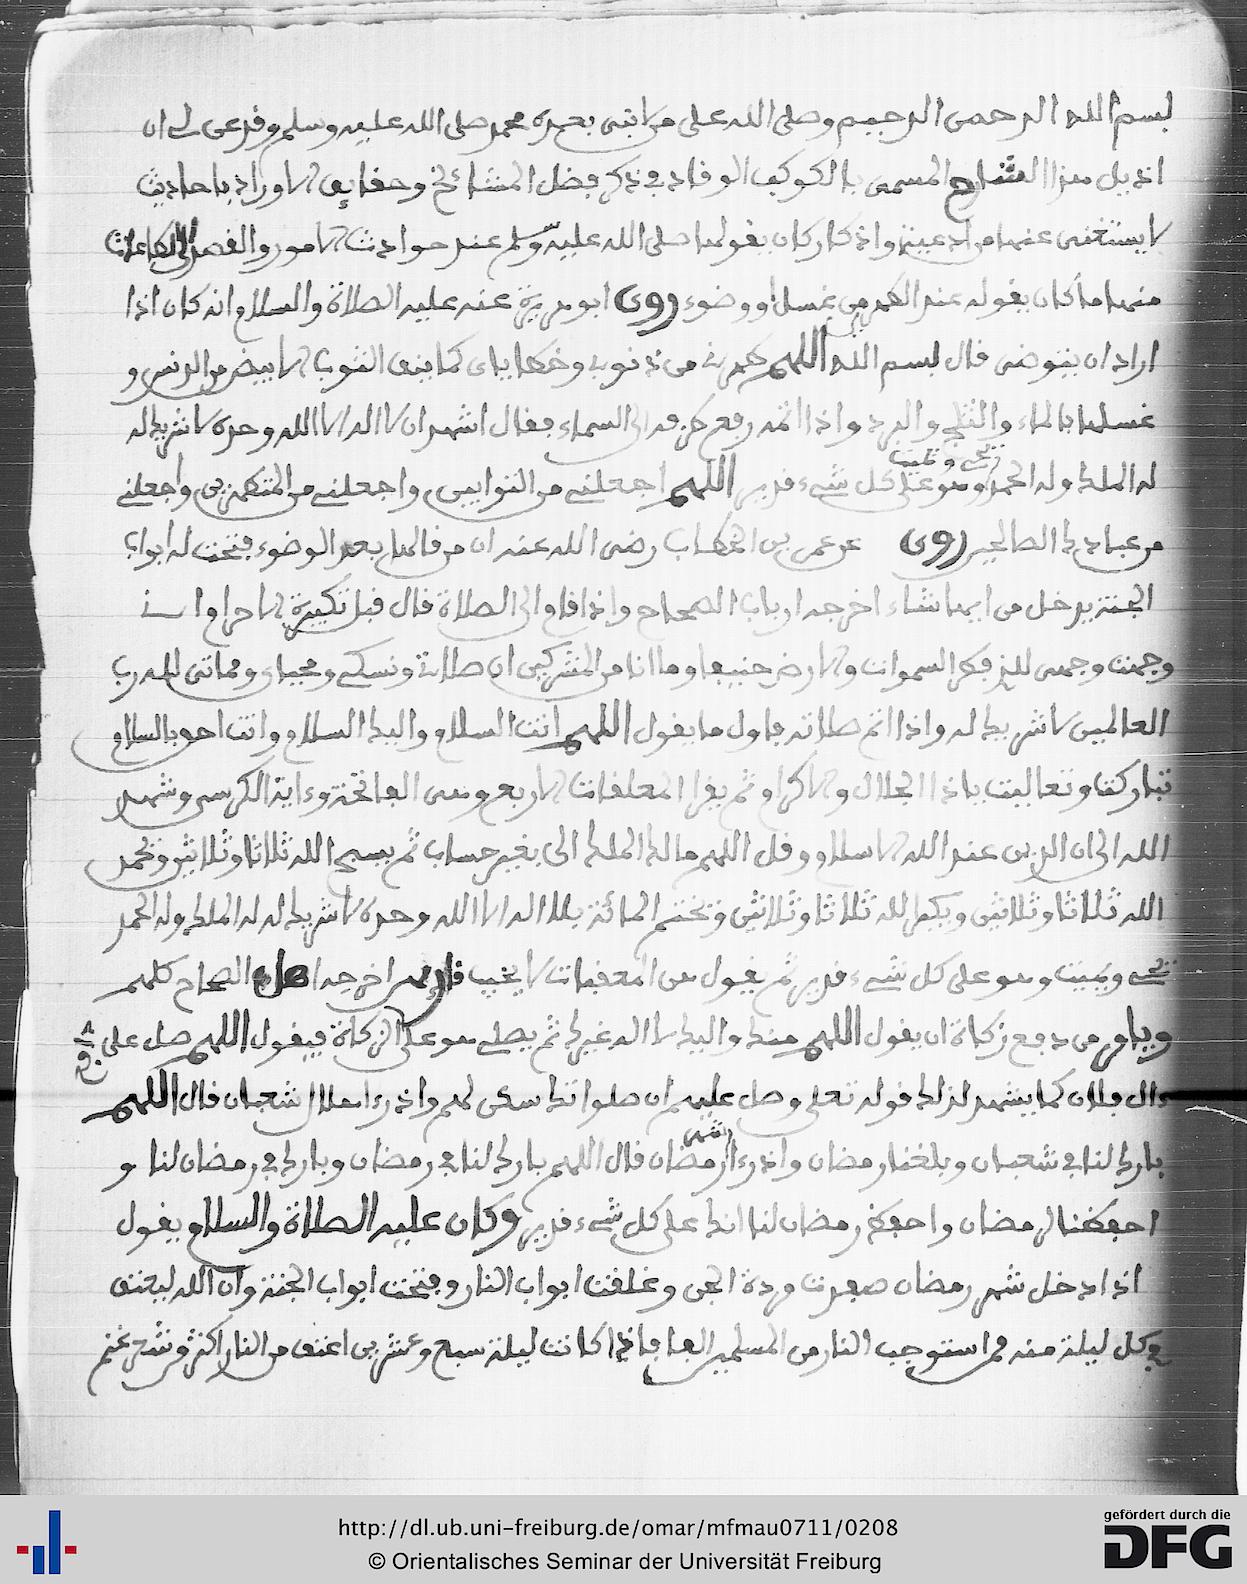 بسم الله الرحمن الرحيم وصلى الله على من لا نبي بعده محمد صلى الله عليه وسلم وقد عن لي ان
اذيل هذا الشارح المسمى بالكوكب الوقاد في ذكر فضل المشائخ وحقايق الاوراد باحاديث
لا يستغنى عنها من ادعية واذكار كان يقولها صلى الله عليه وسلم عند حوادث الامور والقصد الى الطاعات
منها ما كان يقوله عند الطهر من غسل او وضوء (روى) ابو هريرة عنه عليه الصلاة والسلام انه كان اذا
اراد ان يتوضى قال بسم الله اللهم طهرني من ذنوبي وخطاياى كما ينقى الثوب الابيض من الدنس و
غسلها بالماء والثلج والبرد واذا اتمه رفع طرفه الى السماء فقال اشهد ان لا اله الا الله وحده لا شريك له
له الملك وله الحمد يحيي ويميت وهو على كل شيء قدير اللهم اجعلني من التوابين واجعلني من المتطهرين واجعلني
من عبادك الصالحين (روى) عن عمر بن الخطاب رضى الله عنه ان من قالها بعد الوضوء فتحت له ابواب
الجنة يدخل من ايها شاء اخرجه ارباب الصحاح واذا قام الى الصلاة قال قبل تكبيرة الاحرام اني
وجهت وجهى للذي فطر السموات والارض حنيفا وما انا من المشركين ان صلاتي ونسكي ومحياي ومماتى لله رب
العالمين لا شريك له واذا اتم صلاته فاول ما يقول اللهم انت السلام واليك السلام وانت احق بالسلام
تباركت وتعاليت يا ذا الجلال والاكرام ثم يقرا المعلقات الاربع وهى الفاتحة وءاية الكرسى وشهد
الله الى ان الدين عند الله الاسلام وقل اللهم مالك الملك الى بغير حساب ثم يسبح الله ثلاثا وثلاثين ويحمد
الله ثلاثا وثلاثين ويكبر الله ثلاثا وثلاثين ويختم المائة بلا اله الا الله وحده لا شريك له له الملك وله الحمد
يحيي ويميت وهو على كل شيء قدير ثم يقول هن المعقبات لا يخيب قائلهن اخرجه اهل الصحاح كلهم
ويامر من دفع زكاة ان يقول اللهم منك واليك لا اله غيرك ثم يصلي هو على الزكاة فيقول اللهم صل على
ءال فلان كما يشهد لذلك قوله تعلى وصل عليهم ان صلواتك سكن لهم واذ رءا هلال شعبان قال اللهم
بارك لنا في شعبان وبلغنا رمضان واذ رءا شهر رمضان قال اللهم بارك لنا في رمضان وبارك في رمضان لنا و
احفظنا لرمضان واحفظ رمضان لنا انك على كل شيء قدير وكان عليه الصلاة والسلام يقول
اذا دخل شهر رمضان صفدت مردة الجن وغلقت ابواب النار وفتحت ابواب الجنة وان الله ليعتق
في كل ليلة منه ممن استوجب النار من المسلمين الفا فاذا كانت ليلة سبع وعشرين اعتق من النار اكثر من شعر غنم
http://dl.ub.uni-freiburg.de/omar/mfmau0711/0208
© Orientalisches Seminar der Universität Freiburg
gefördert durch die
DFG